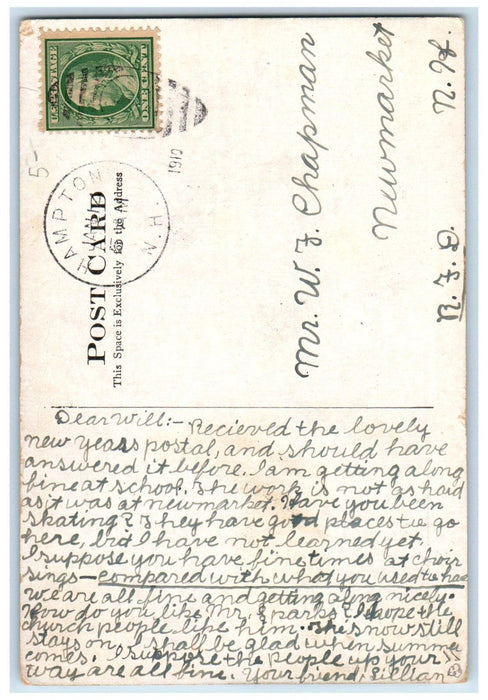 U.S. POSTAGE
ONE CENT
HAMPTON
N.H.
1910
POST CARD
This Space is Exclusively for the Address
Mr. W. F. Chapman
Newmarket
R.F.D. N.H.
Dear Will:- Recieved the lovely
new years postal, and should have
answered it before. I am getting along
fine at school. The work is not as hard
as it was at newmarket. Have you been
skating? They have good places to go
here, but I have not learned yet.
I suppose you have fine times at choir
sings - compared with what you used to have
we are all fine and getting along nicely.
How do you like Mr. Sparks? I hope the
church people like him. The snow still
stays on. I shall be glad when summer
comes. I suppose the people up your
way are all fine. Your friend, Lillian